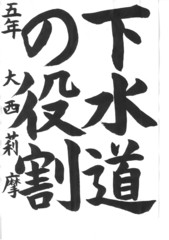 下水道
の役割
五年 大西莉摩